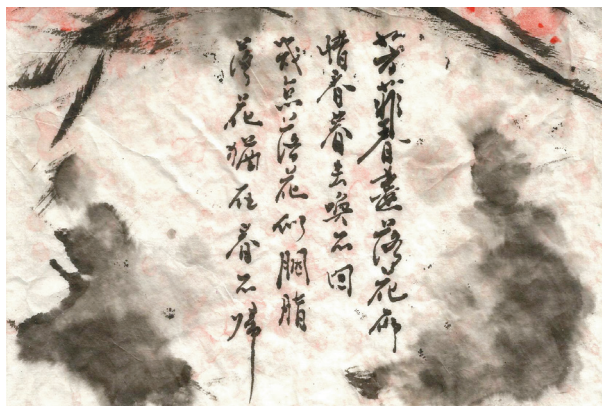 芳菲春盡落花
惜春春去喚不回
幾点落花似胭脂
花猶在春不歸